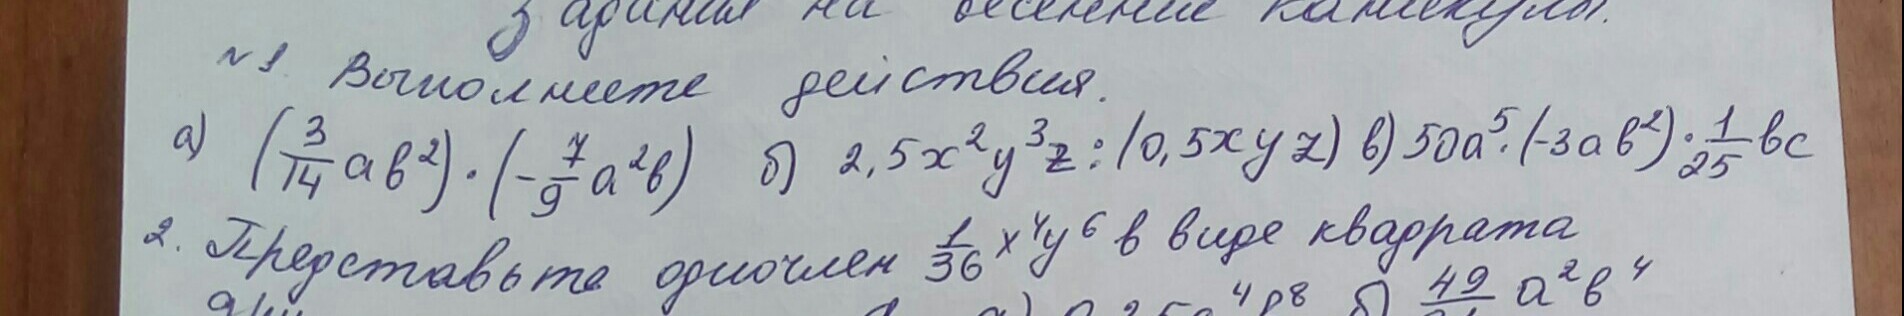 Задания на весенние каникулы.
№1. Выполните действия.
а) (3/14 ab²) · (-7/9 a²b) б) 2,5x²y³z : (0,5xyz) в) 50a⁵ · (-3ab²) · 1/25 bc
2. Представьте одночлен 1/36 x⁴y⁶ в виде квадрата
а) б) 49 a²b⁴